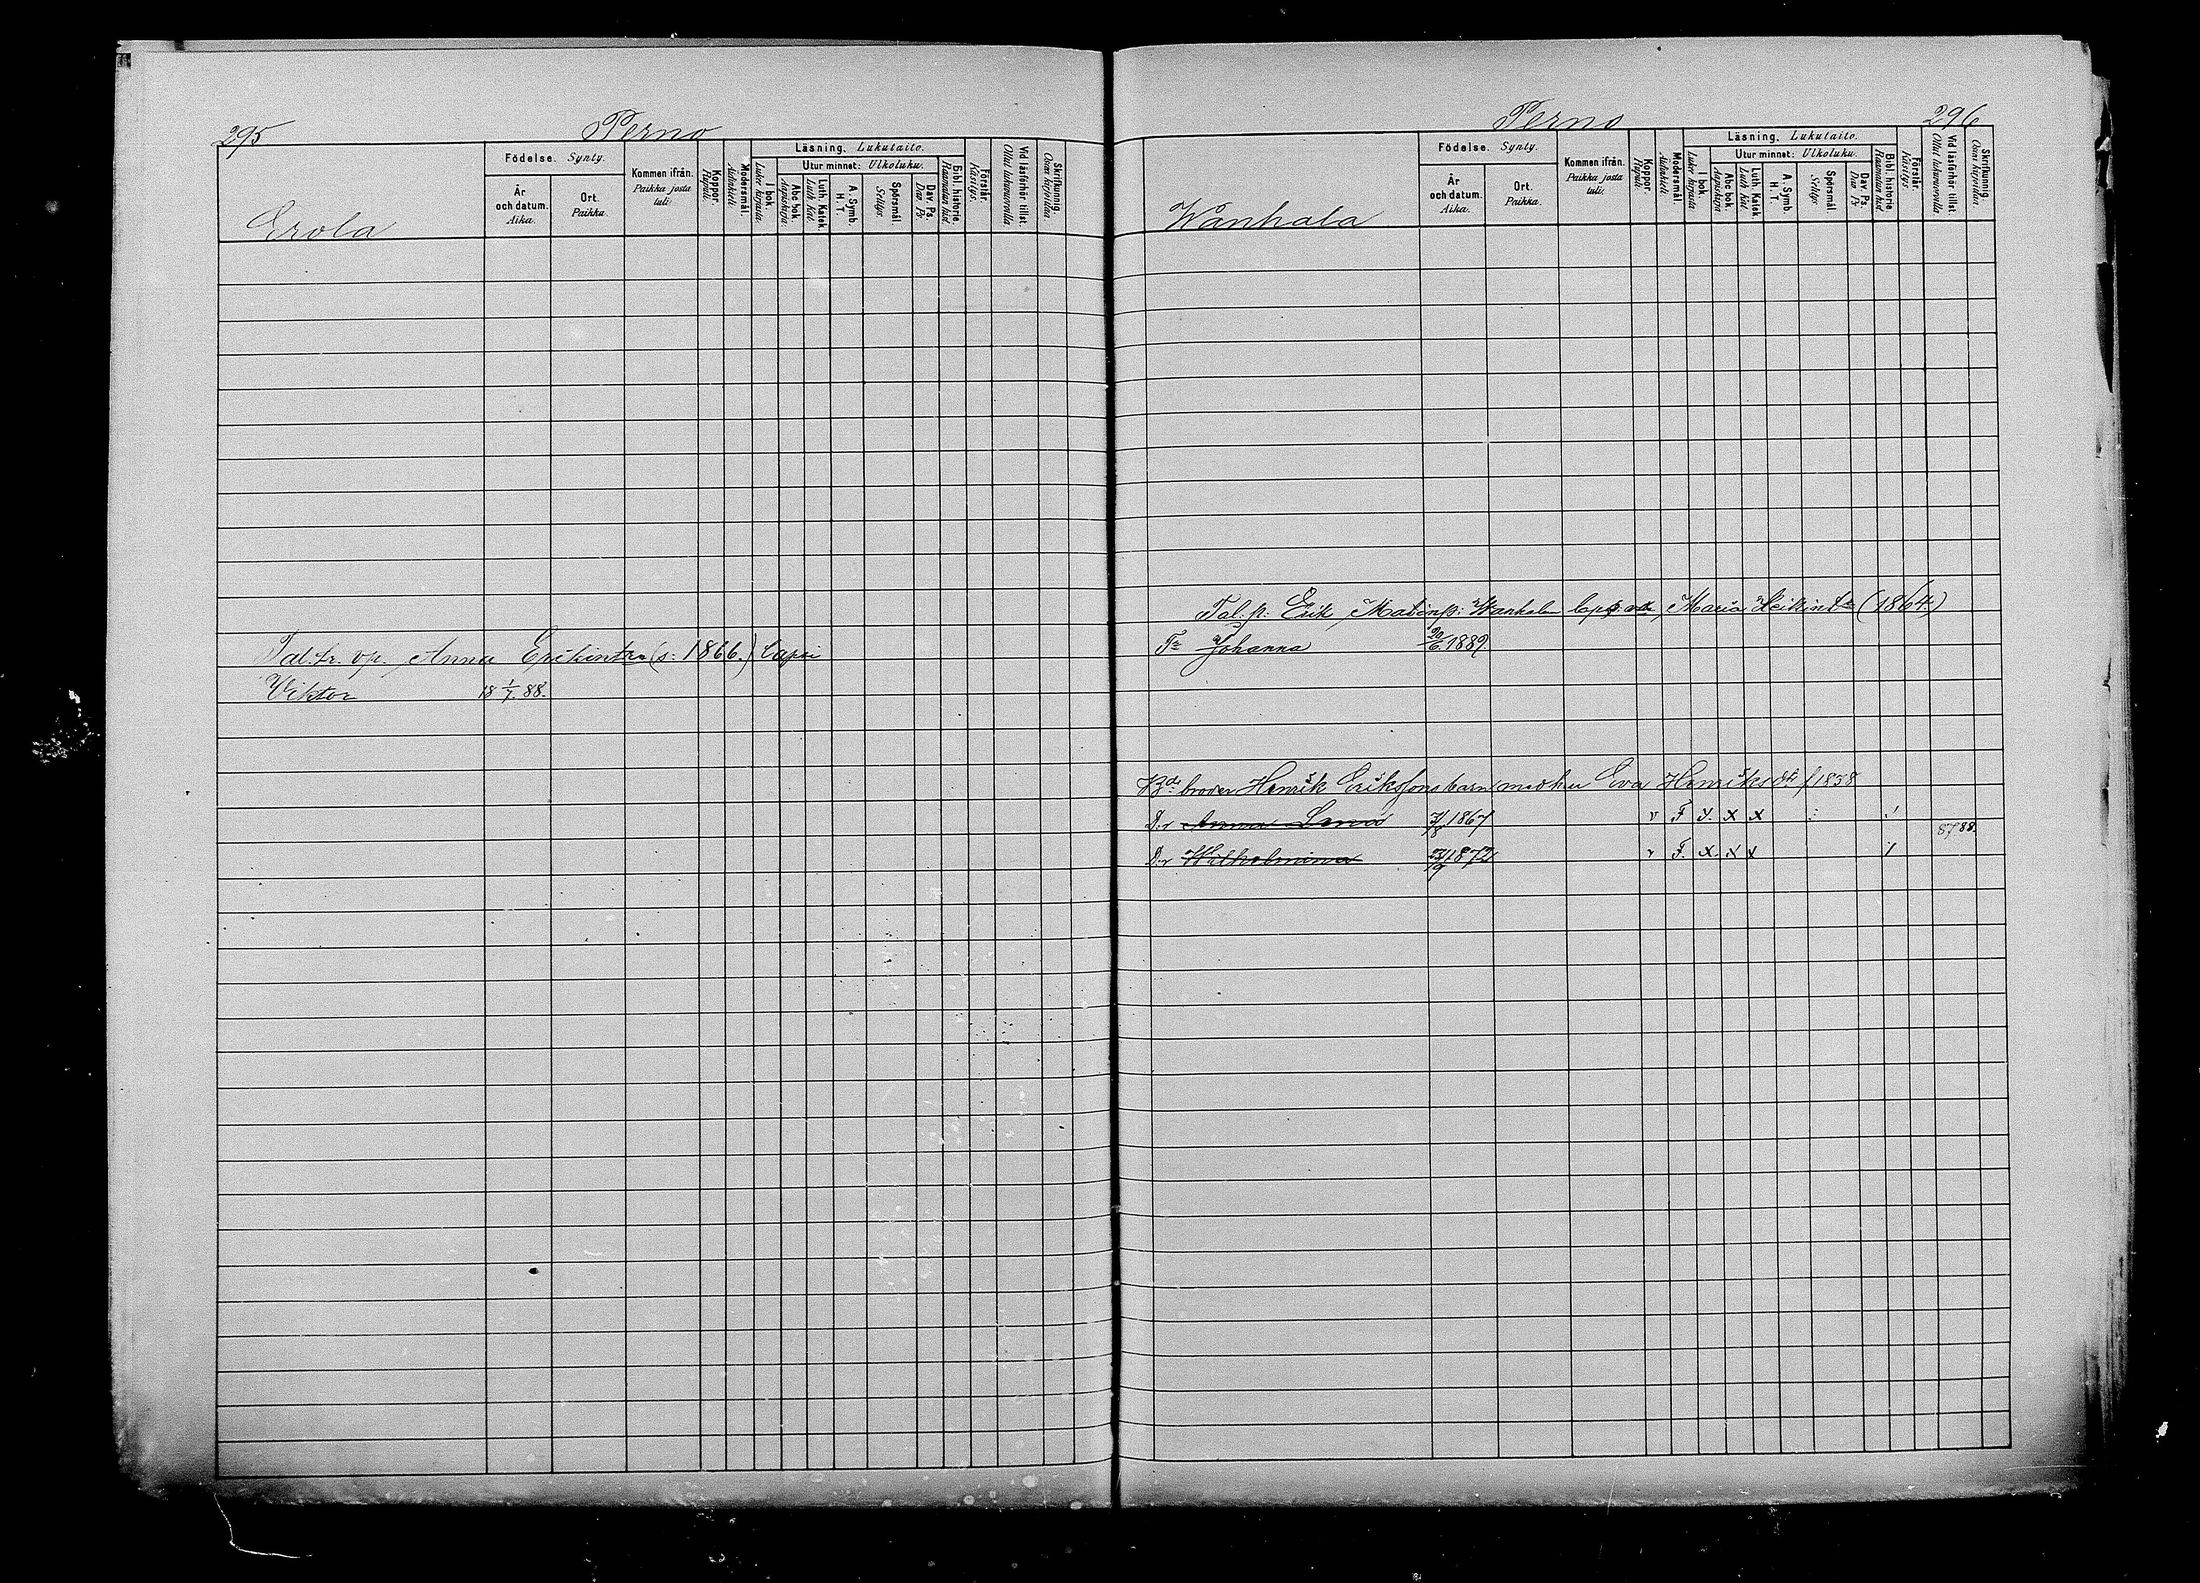 295
Perno
Erola
Födelse. Synty.
År och datum. Aika.
Ort. Paikka.
Kommen ifrån. Paikka josta tuli.
Koppor. Rupuli.
Modersmål. Äidinkieli.
Läsning. Lukutaito.
I bok. Lukee kirjasta.
Utur minnet: Ulkoluku.
Abc bok. Aapiskirja.
Luth. Katek. Luth Kat.
A. Symb. H. T.
Spörsmål. Selitys.
Dav. Ps. Dav. Ps
Bibl. historie. Raamatun hist.
Förstår. Käsitys.
Vid läsförhör tillst. Ollut lukuvuorolla
Skrifkunnig. Osaa kirjoittaa
Tal.tr. vp. Anna Erikintr. (s: 1866.) lapsi
Viktor 18 1/7. 88.
Perno
296
Wanhala
Födelse. Synty.
År och datum. Aika.
Ort. Paikka.
Kommen ifrån. Paikka josta tuli.
Koppor. Rupuli.
Modersmål. Äidinkieli.
Läsning. Lukutaito.
I bok. Lukee kirjasta
Utur minnet: Ulkoluku.
Abc bok. Aapiskirja
Luth. Katek. Luth Kat.
A. Symb. H. T.
Spörsmål. Selitys.
Dav. Ps. Dav. Ps
Bibl. historie. Raamatun hist.
Förstår. Käsitys.
Vid läsförhör tillst. Ollut lukuvuorolla
Skrifkunnig. Osaa kirjoittaa
Tal.p. Erik Matinp: Wanhala Maria Heikint. (1864)
Tr Johanna 20/6. 1889.
broder Henrik Erikssons barn med hu Eva Henriksdr f 1838
D:r Anna Lena 1867 v F x. x x
87 88.
D:r Wilhelmina 1872 v F. x. x x /